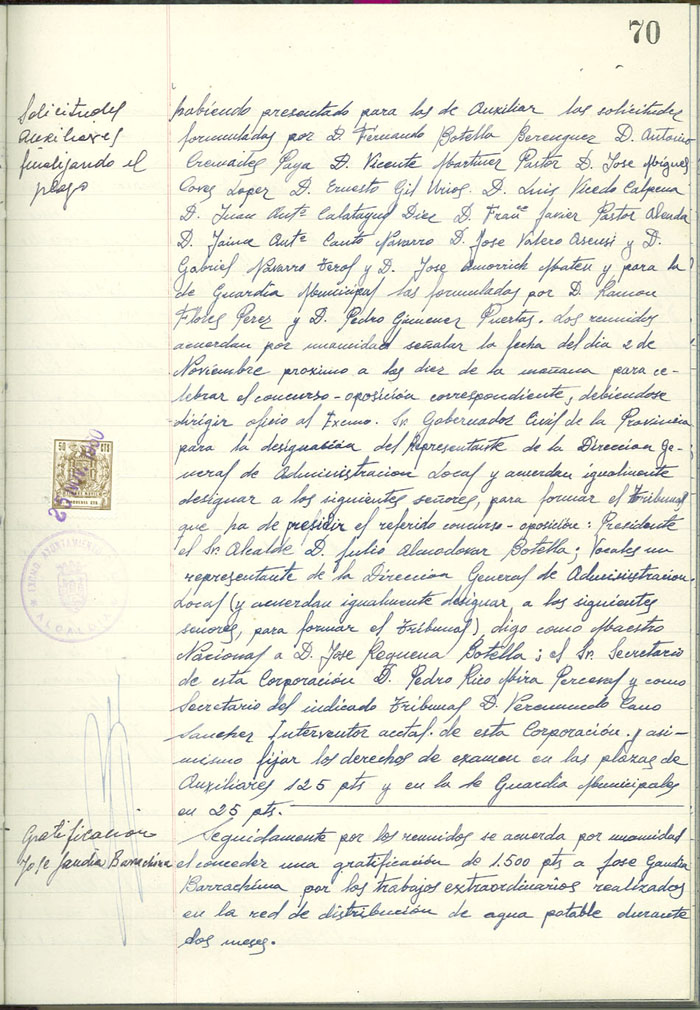 70
Solicitudes
auxiliares
finalizando el
plazo
habiendo presentado para las de Auxiliar las solicitudes
formuladas por D. Fernando Botella Berenguer D. Antonio
Cremades Paya D. Vicente Martinez Pastor D. Jose Miguel
Coves Lopez D. Ernesto Gil Urios D. Luis Vicedo Calpena
D. Juan Antº Calatayud Diez D. Franº Javier Pastor Alenda
D. Jaime Antº Canto Navarro D. Jose Valero Asensi y D.
Gabriel Navarro Terol y D. Jose Amorrich Mateu y para la
de Guardia Municipal las formuladas por D. Ramon
Flores Perez y D. Pedro Gimenez Puertas. Los reunidos
acuerdan por unanimidad señalar la fecha del dia 2 de
Noviembre proximo a las diez de la mañana para ce-
lebrar el concurso-oposición correspondiente, debiendose
dirigir oficio al Excmo. Sr. Gobernador Civil de la Provincia
para la designación del Representante de la Direccion Ge-
neral de Administracion Local y acuerdan igualmente
designar a los siguientes señores, para formar el Tribunal
que ha de presidir el referido concurso-oposición: Presidente
el Sr. Alcalde D. Julio Almodovar Botella; Vocales un
representante de la Direccion General de Administracion
Local (y acuerdan igualmente designar a los siguientes
señores, para formar el Tribunal) digo como Maestro
Nacional a D. Jose Requena Botella; el Sr. Secretario
de esta Corporación D. Pedro Rico Mira Perceval y como
Secretario del indicado Tribunal D. Veremundo Cano
Sanchez Interventor acctal. de esta Corporación. y asi-
mismo fijar los derechos de examen en las plazas de
Auxiliares 125 pts y en la de Guardia Municipales
en 25 pts.
50 CTS
EXCMO. AYUNTAMIENTO
ALCALDIA
Gratificación
Jose Gandia Barrachina
Seguidamente por los reunidos se acuerda por unanimidad
el conceder una gratificación de 1.500 pts a Jose Gandia
Barrachina por los trabajos extraordinarios realizados
en la red de distribución de agua potable durante
dos meses.